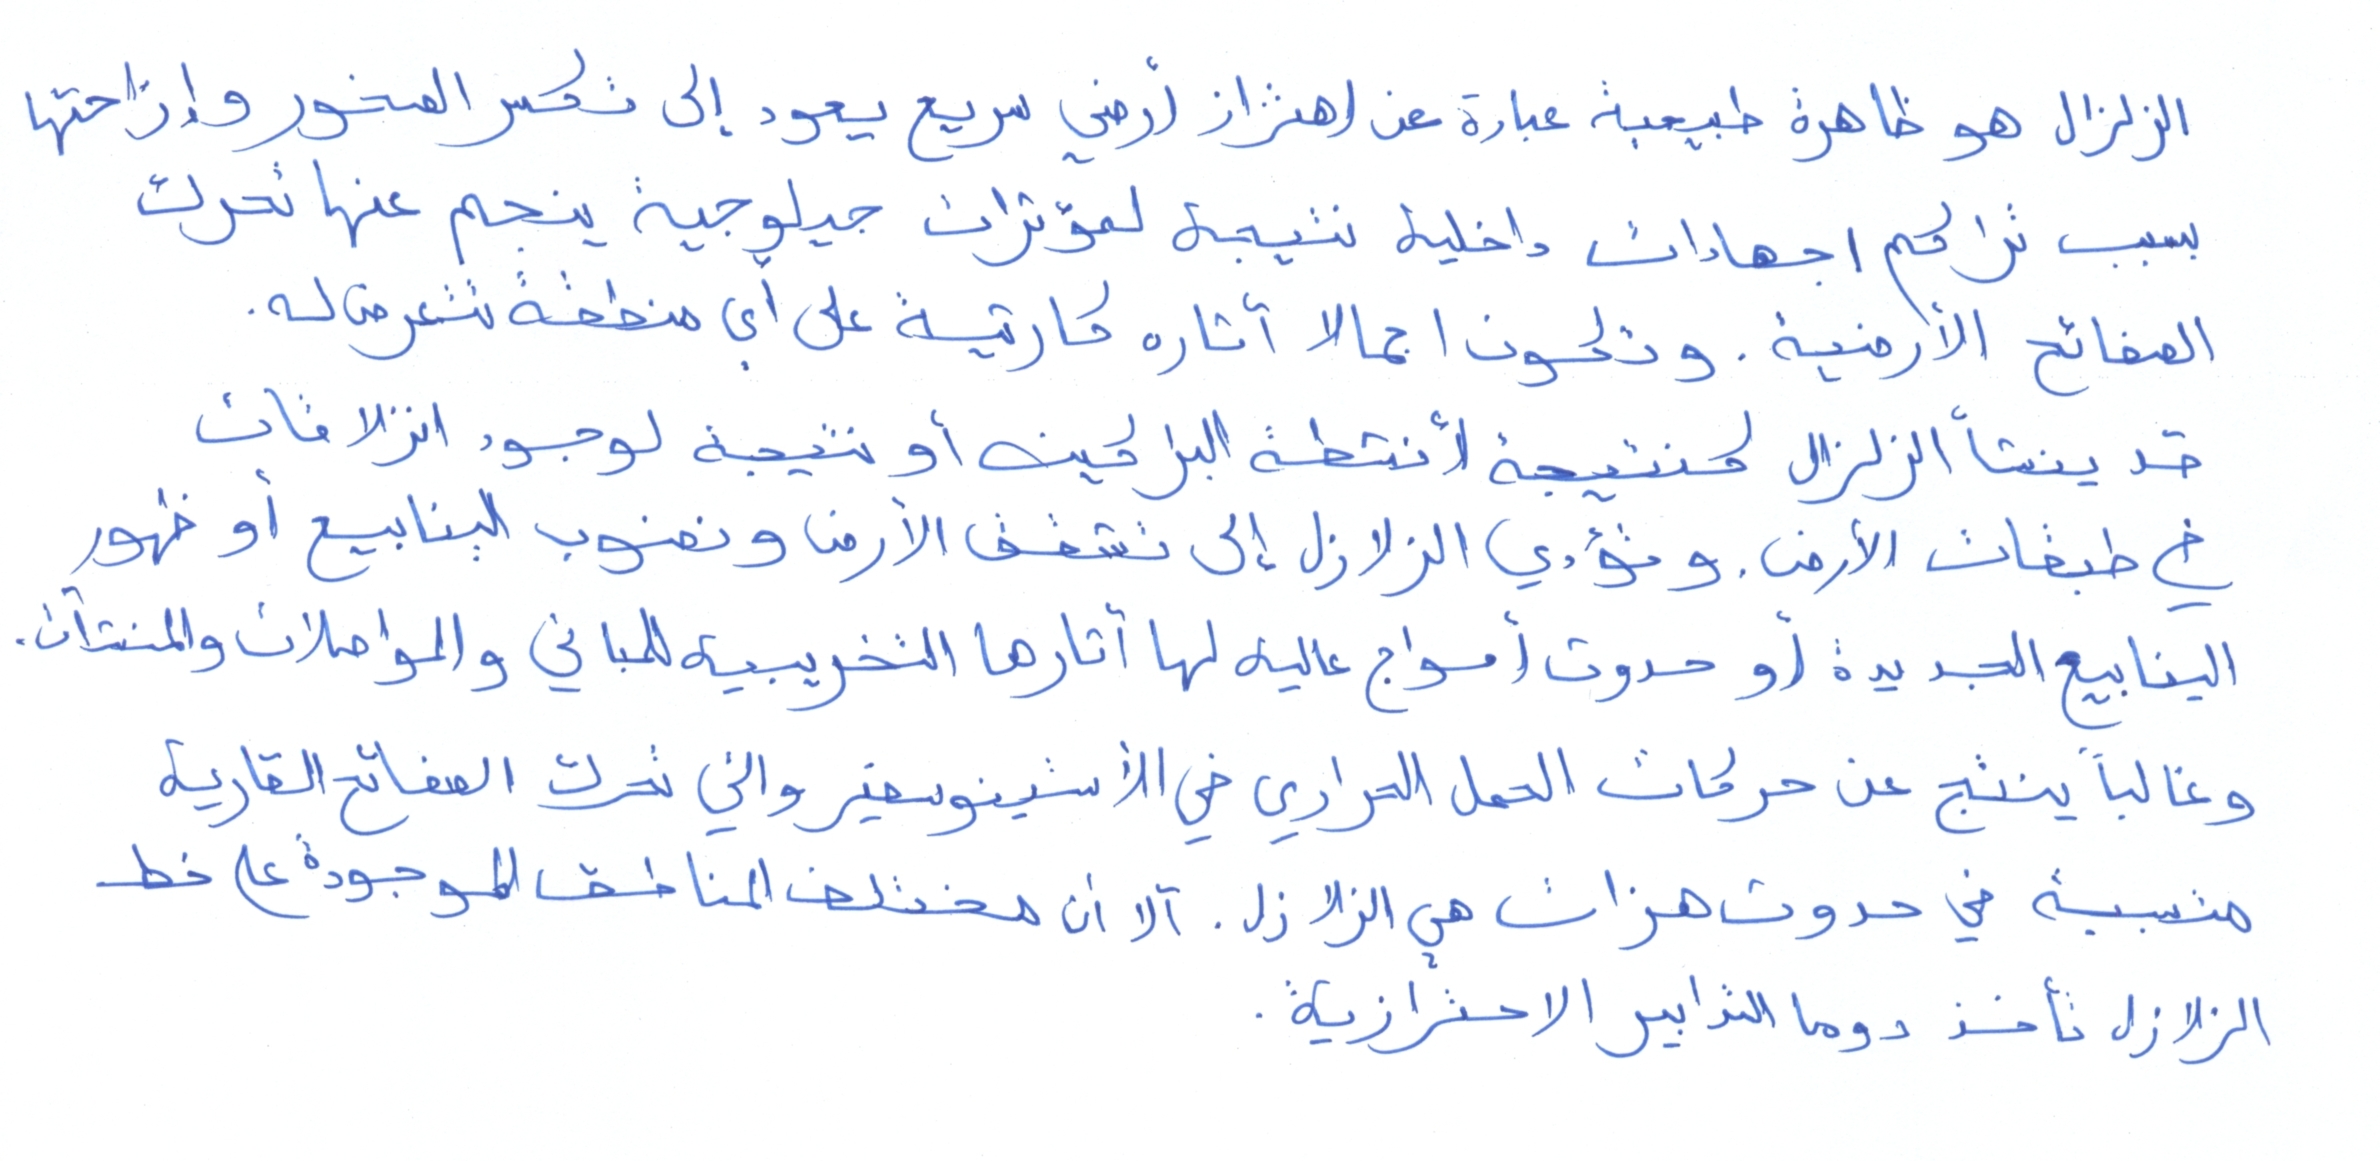 الزلزال هو ظاهرة طبيعية عبارة عن اهتزاز أرضي سريع يعود إلى تكسر الصخور وإزاحتها
بسبب تراكم اجهادات داخلية نتيجة لمؤثرات جيلوجية ينجم عنها تحرك
الصفائح الأرضية. وتكون اجمالا أثاره كارثية على أي منطقة تتعرض له.
قد ينشأ الزلزال كنتيجة لأنشطة البراكين أو نتيجة لوجود انزلاقات
في طبقات الأرض. وتؤدي الزلازل إلى تشقق الأرض ونضوب الينابيع أو ظهور
الينابيع الجديدة أو حدوث أمواج عاليه لها أثارها التخريبية للمباني والمواصلات والمنشآت.
وغالباً ينتج عن حركات الحمل الحراري في الأستينوسفير والتي تحرك الصفائح القارية
متسببة في حدوث هزات هي الزلازل. آلا أن مختلف المناطق الموجودة على خط
الزلازل تأخذ دوما التدابير الاحترازية.